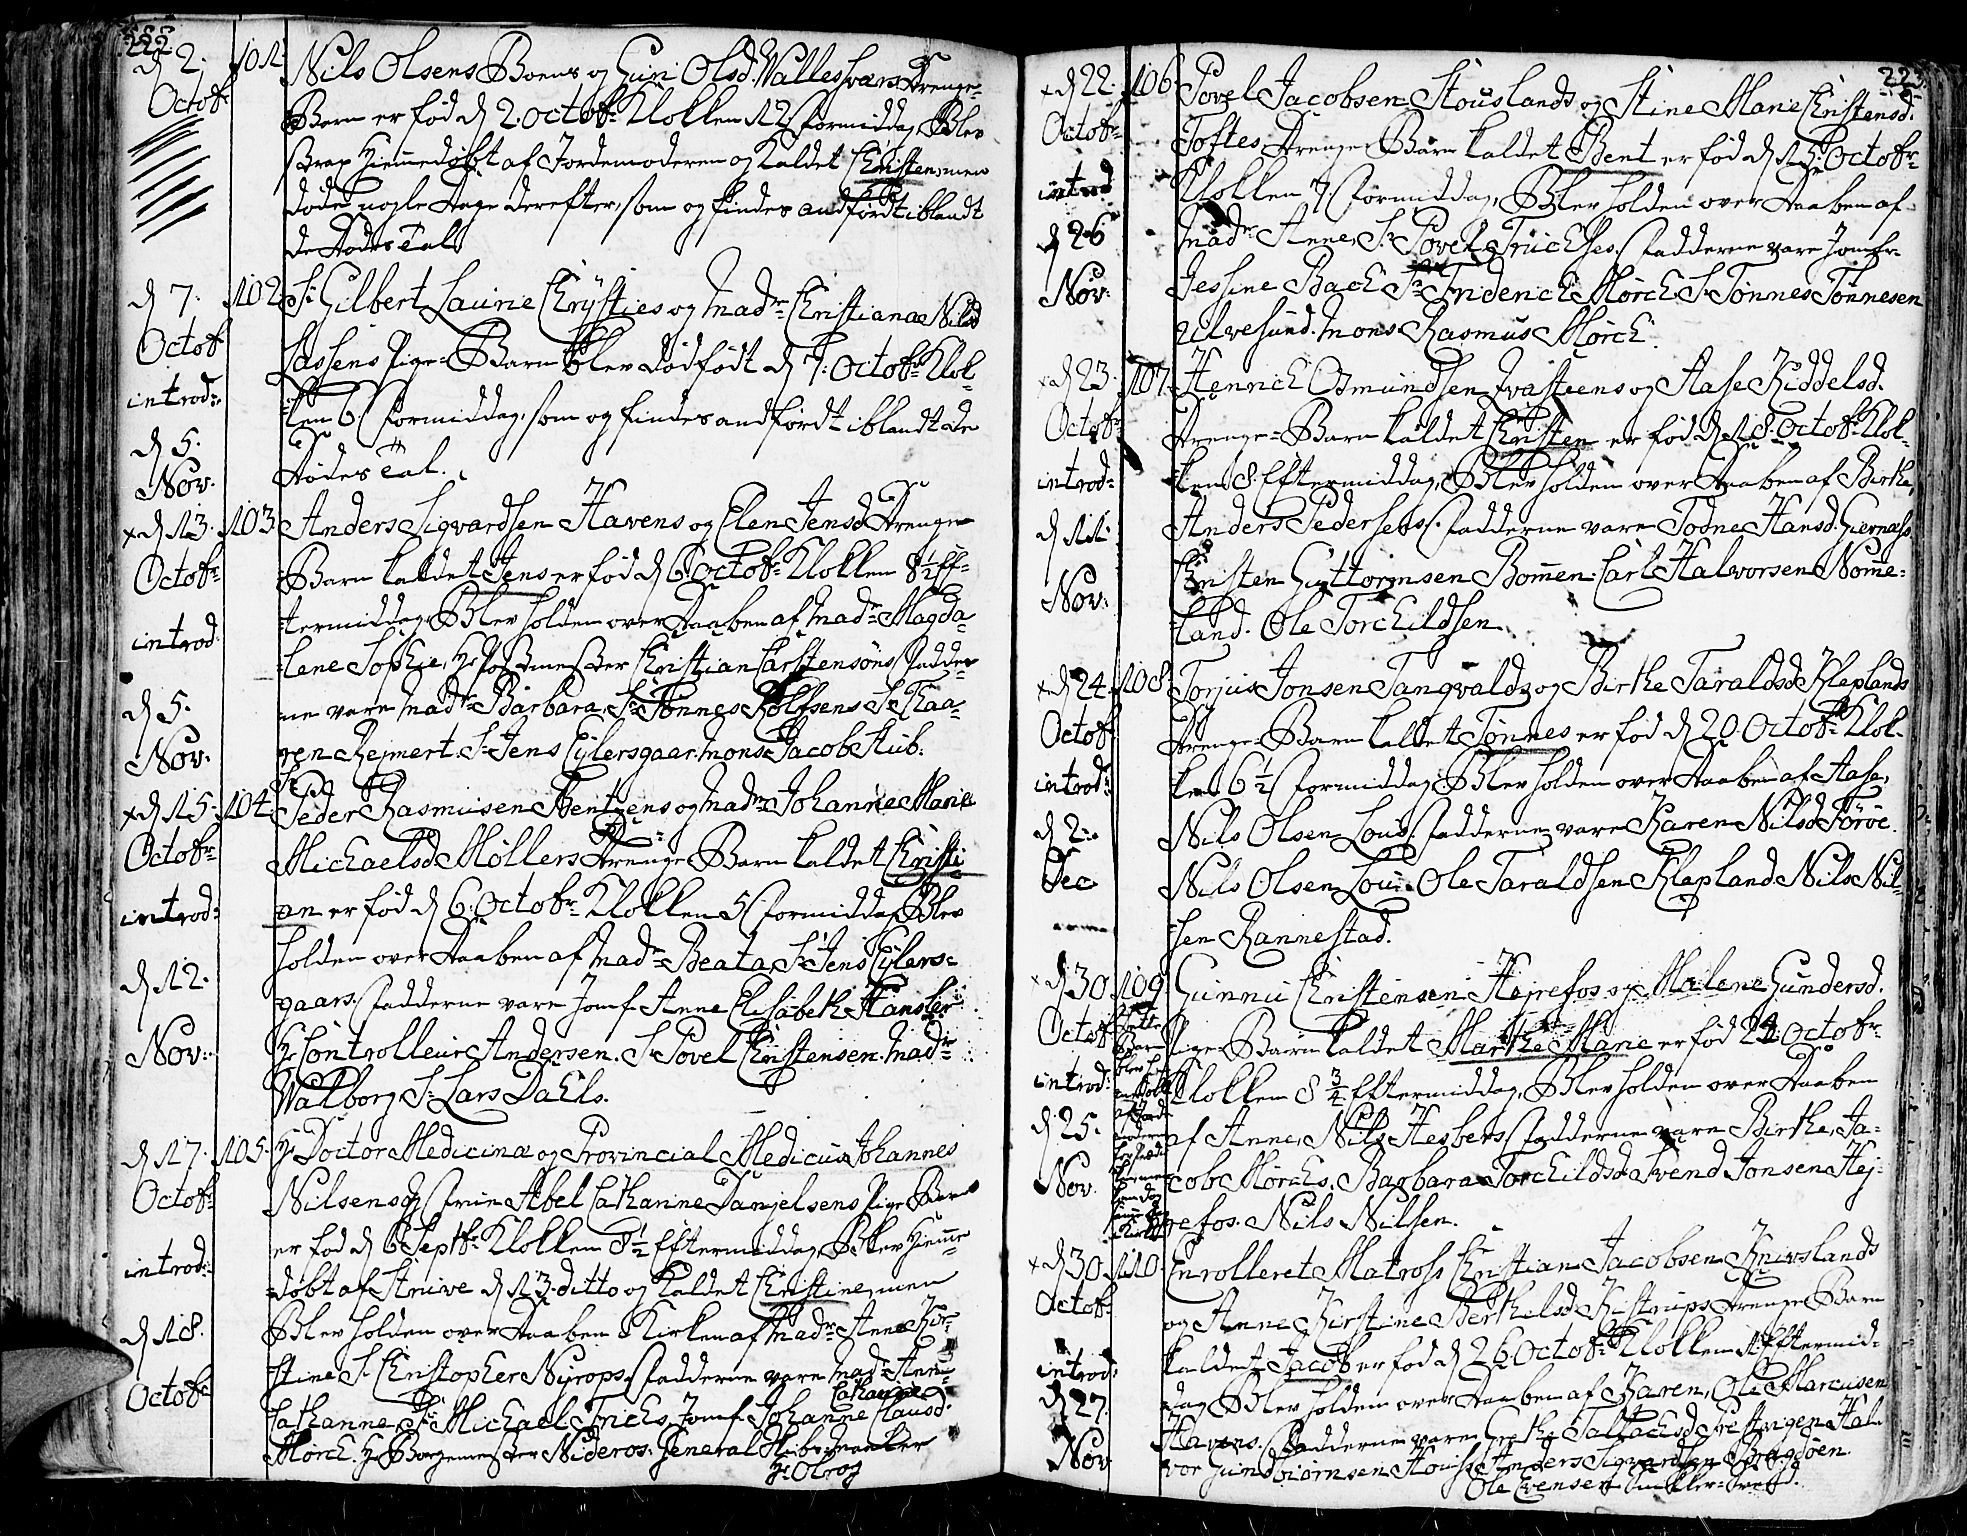 222.
d 2. Octobr
101. Nils Olsens Boens og Guri Olsd. Wallesværs Drenge-
Barn er fød d 2. Octobr Klokken 12 Formiddag, Blev
strax Hiemmedøbt af Jordemoderen og Kaldet Christen, men
døde nogle Dage derefter, som og findes andførdt iblandt
de Dødes Tal.
d 7. Octobr introd: d 5. Nov:
102. Sr Gilbert Laurie Chrÿsties og Madme Christiana Nilsd
Lassens Pige-Barn blev dødfødt d 7. Octobr Klok-
ken 6 Formiddag, som og findes andførdt iblandt de
Dødes Tal.
x d 13. Octobr introd: d 5. Nov:
103. Anders Sigvardsen Havens og Elen Jensd Drenge
Barn kaldet Jens er fød d 6 Octobr Klokken 8½ Ef-
termiddag, Blev holden over Daaben af Madme Magda-
lene Sophie, Hr Christian Carstensøns, Fadder-
ne vare Madme Barbara, Sr Tønnes Rolfsens, Sr
Rejnert, Sr Jens Eylersgaar, Mons: Jacob Stub.
x d 15. Octobr introd: d 12. Nov:
104. Peder Rasmusen Bentzens og Madme Johanne Marie
Michaelsd Møllers Drenge Barn kaldet Christi-
an er fød d 6. Octobr Klokken 5 Formiddag, Blev
holden over Daaben af Madme Beata, Sr Jens Eylers-
gaars, Fadderne vare Jomf. Anne Elisabeth
Hr Controlleur Andersen. Sr Povel Christensen. Madme
Walborg, Sr Lars Dahls.
d 17. Octobr introd: d 18. Octobr
105. Hr Doctor Medicinæ og Provincial Medicus Johannes
Nilsens og Frue Abel Cathanrine Danjelsens Pige Barn
er fød d 6 Septbr Klokken 8½ Eftermiddag, Blev Hiemme-
døbt af Strive d 13. ditto og Kaldet Christine, men
Blev holden over Daaben i Kirken af Madme Anne Kir-
stine, Sr Christopher Nyrops, Fadderne vare Madme Anne
Cathanne, Sr Michael Friehs, Jomf. Johanne Clausd.
Mørch. Hr Borgemester Nideros. General
Hr Oloog
223.
x d 22. Octobr introd d 26 Nov:
106 Povel Jacobsen Stouslands og Stine Marie Christensd.
Toftes Drenge Barn kaldet Bent er fød d 15. Octobr
Klokken 7 Formiddag, Blev holden over Daaben af
Madme Anne, Sr Povel Truelses, Fadderne vare Jomfr.
Jessine Bach, Sr Friderich Mørch, Sr Tønnes Tønnesen
Ulvesund. Mons: Rasmus Mørch.
x d 23. Octobr introd: d 11. Nov:
107. Henrich Osmundsen Qvasteens og Aase Kiddelsd.
Drenge-Barn kaldet Christen er fød d 18. Octobr Klok-
ken 8. Eftermiddag, Blev holden over Daaben af Birthe,
Anders Pedersens, Fadderne vare Todne Hansd.
Christen Guttormsen Bomen. Carl Halvorsen Nomme-
land. Ole Torchildsen.
x d 24. Octobr introd: d 2. Dec
108. Torjus Jonsen Tangvalds og Birthe Taraldsd. Kleplands
Drenge Barn kaldet Tønnes er fød d 20. Octobr Klok-
ken 6½ Formiddag, Blev holden over Daaben af Aase,
Nils Olsen Lous, Fadderne vare Karen Nilsd
Nils Olsen Lou. Ole Taraldsen Klepland. Nils Nil-
sen Rannestad.
x d 30 Octobr introd: d 25. Nov.
109 Gunnu Christensen Hejrefos og Malene Gundersd.
Pige Barn kaldet Marthe Marie er fød 24 Octobr
Klokken 8¾ Eftermiddag, Blev holden over Daaben
af Anne, Nils Hesbers, Fadderne vare Birthe, Ja-
cob Mørchs, Barbara Torchildsd. Svend Jonsen Hej-
refos. Nils Nilsen.
x d 30 Octobr introd: d 27. Nov
110 Enrolleret Matross Christian Jacobsen Knivslands
og Anne Kirstine Berthelsd Kistrups Drenge Barn
kaldet Jacob er fød d 26. Octobr Klokken 1 Eftermid-
dag, Blev holden over Daaben af Karen, Ole Marcusen
Havens, Fadderne vare Grethe Hal-
vor Gundbiørnsen Anders Sigvardsen
Ole Evensen